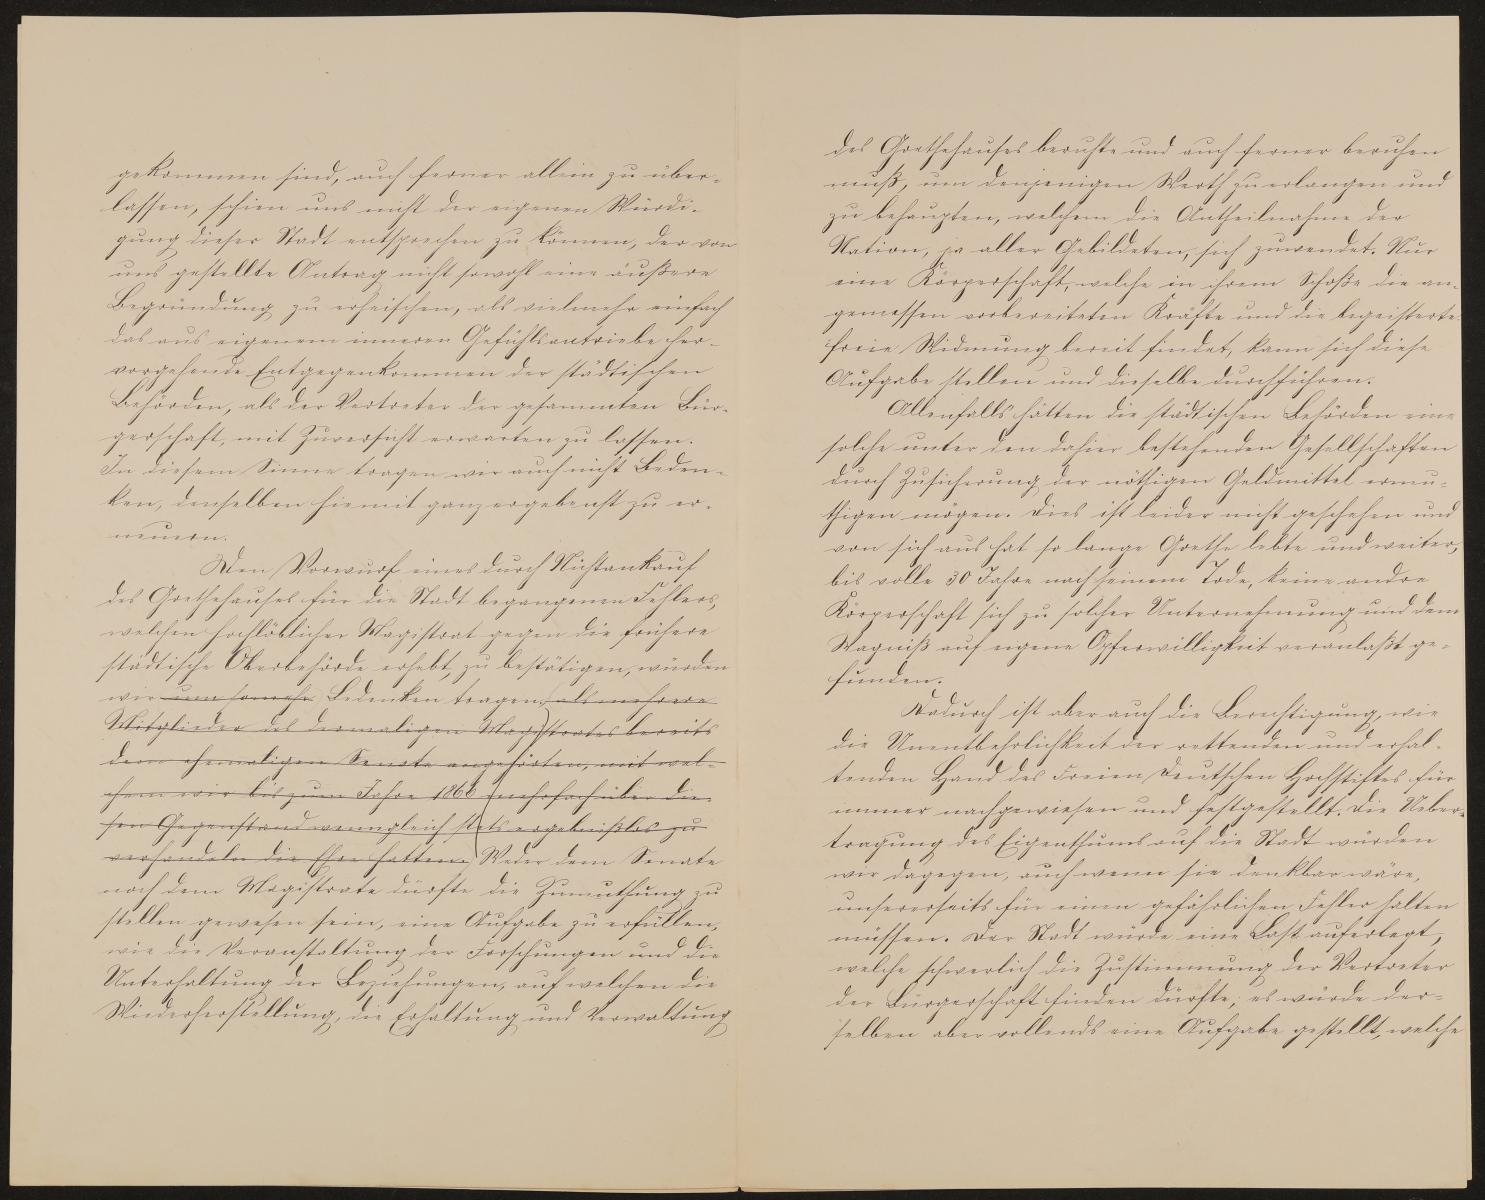 gekommen sind, auch ferner allein zu über-
lassen, schien uns nicht der eigenen Würdi-
gung dieser Stadt entsprechen zu können, der von
uns gestellte Antrag nicht sowohl eine äußere
Begründung zu erheischen, als vielmehr einfach
das aus eigenem inneren Gefühlsantriebe her-
vorgehende Entgegenkommen der städtischen
Behörden, als der Vertreter der gesammten Bür-
gerschaft, mit Zuversicht erwarten zu lassen.
In diesem Sinne tragen wir auch nicht Beden-
ken, denselben hiemit ganz ergebenst zu er-
neuern.
Den Vorwurf eines durch Nichtankauf
des Goethehauses für die Stadt begangenen Fehlers,
welchen hochlöblicher Magistrat gegen die frühere
städtische Oberbehörde erhebt, zu bestätigen, würden
wir um so mehr Bedenken tragen, als mehrere
Mitglieder des dermaligen Magistrates bereits
dem ehemaligen Senate angehörten, mit wel-
chem wir bis zum Jahre 1866 mehrfach über die-
sen Gegenstand wenngleich stets ergebnißlos zu
verhandeln die Ehre hatten. Weder dem Senate
noch dem Magistrate dürfte die Zumuthung zu
stellen gewesen sein, eine Aufgabe zu erfüllen,
wie die Veranstaltung der Forschungen und die
Unterhaltung der Beziehungen, auf welchen die
Wiederherstellung, die Erhaltung und Verwaltung
des Goethehauses beruhte und auch ferner beruhen
muß, um denjenigen Werth zu erlangen und
zu behaupten, welchem die Antheilnahme der
Nation, ja aller Gebildeten, sich zuwendet. Nur
eine Körperschaft, welche in ihrem Schoße die an-
gemessen vorbereiteten Kräfte und die begeisterte
freie Widmung bereit findet, kann sich diese
Aufgabe stellen und dieselbe durchführen.
Allenfalls hätten die städtischen Behörden eine
solche unter den dahier bestehenden Gesellschaften
durch Zusicherung der nöthigen Geldmittel ermu-
thigen mögen. Dies ist leider nicht geschehen und
von sich aus hat so lange Goethe lebte und weiter,
bis volle 30 Jahre nach seinem Tode, keine andre
Körperschaft sich zu solcher Unternehmung und dem
Wagniß auf eigene Opferwilligkeit veranlaßt ge-
funden.
Dadurch ist aber auch die Berechtigung, wie
die Unentbehrlichkeit der rettenden und erhal-
tenden Hand des Freien Deutschen Hochstiftes für
immer nachgewiesen und festgestellt. Die Ueber-
tragung des Eigenthums auf die Stadt würden
wir dagegen, auch wenn sie denkbar wäre,
unsererseits für einen gefährlichen Fehler halten
müssen. Der Stadt würde eine Last auferlegt,
welche schwerlich die Zustimmung der Vertreter
der Bürgerschaft finden dürfte; es würde der-
selben aber vollends eine Aufgabe gestellt, welche